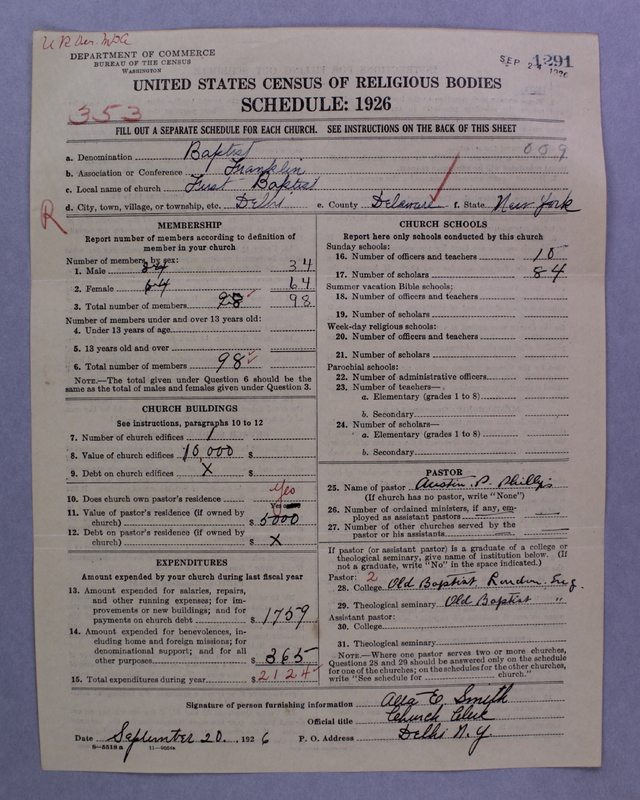 DEPARTMENT OF COMMERCE
BUREAU OF THE CENSUS
WASHINGTON
SEP 1291
1926
UNITED STATES CENSUS OF RELIGIOUS BODIES
SCHEDULE: 1926
353
FILL OUT A SEPARATE SCHEDULE FOR EACH CHURCH. SEE INSTRUCTIONS ON THE BACK OF THIS SHEET
a. Denomination Baptist 009
b. Association or Conference Franklin
c. Local name of church First Baptist
d. City, town, village, or township, etc. Delhi e. County Delaware f. State New York
R
MEMBERSHIP
Report number of members according to definition of
member in your church
Number of members, by sex:
1. Male 34 34
2. Female 64 64
3. Total number of members 98 98
Number of members under and over 13 years old:
4. Under 13 years of age
5. 13 years old and over
6. Total number of members 98
NOTE.—The total given under Question 6 should be the
same as the total of males and females given under Question 3.
CHURCH BUILDINGS
See instructions, paragraphs 10 to 12
7. Number of church edifices 1
8. Value of church edifices 10,000 $
9. Debt on church edifices X $
Yes
10. Does church own pastor's residence Yes
11. Value of pastor's residence (if owned by
church) $ 5000
12. Debt on pastor's residence (if owned by
church) $ X
EXPENDITURES
Amount expended by your church during last fiscal year
13. Amount expended for salaries, repairs,
and other running expenses; for im-
provements or new buildings; and for
payments on church debt $ 1759
14. Amount expended for benevolences, in-
cluding home and foreign missions; for
denominational support; and for all
other purposes $ 365
15. Total expenditures during year $ 2124
CHURCH SCHOOLS
Report here only schools conducted by this church
Sunday schools:
16. Number of officers and teachers 10
17. Number of scholars 84
Summer vacation Bible schools:
18. Number of officers and teachers
19. Number of scholars
Week-day religious schools:
20. Number of officers and teachers
21. Number of scholars
Parochial schools:
22. Number of administrative officers
23. Number of teachers—
a. Elementary (grades 1 to 8)
b. Secondary
24. Number of scholars—
a. Elementary (grades 1 to 8)
b. Secondary
PASTOR
25. Name of pastor Austin P. Phillips
(If church has no pastor, write "None")
26. Number of ordained ministers, if any, em-
ployed as assistant pastors
27. Number of other churches served by the
pastor or his assistants
If pastor (or assistant pastor) is a graduate of a college or
theological seminary, give name of institution below. (If
not a graduate, write "No" in the space indicated.)
Pastor: 2
28. College Old Baptist Eng.
29. Theological seminary Old Baptist "
Assistant pastor:
30. College
31. Theological seminary
NOTE.—Where one pastor serves two or more churches,
Questions 28 and 29 should be answered only on the schedule
for one of the churches; on the schedules for the other churches,
write "See schedule for church."
Signature of person furnishing information Smith
Official title Church Clerk
Date September 20, 1926 P. O. Address Delhi N.Y.
8—5518a